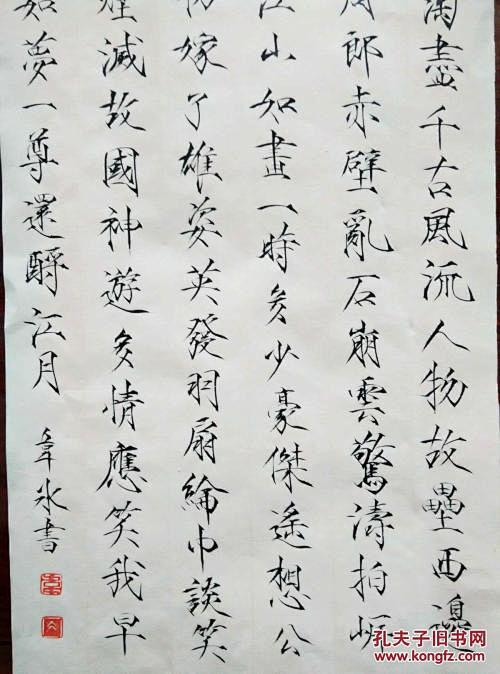 淘盡千古風流人物故壘西邊
周郎赤壁亂石崩雲驚濤拍岸
江山如畫一時多少豪傑遙想公
初嫁了雄姿英發羽扇綸巾談笑
煙滅故國神遊多情應笑我早
如夢一尊還酹江月
韋冰書
孔夫子旧书网
KONGFZ.COM